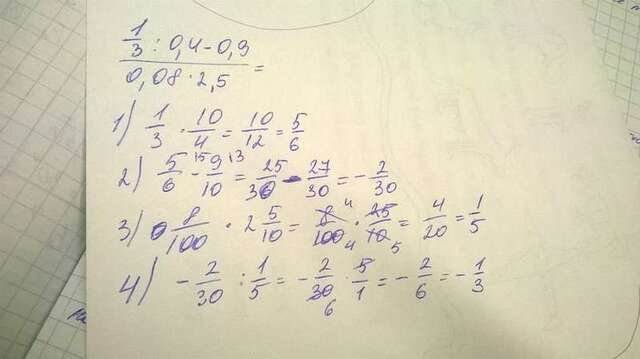 1/3 : 0,4 - 0,9
0,08 · 2,5 =
1) 1/3 · 10/4 = 10/12 = 5/6
2) 5/6 15 - 9/10 13 = 25/30 - 27/30 = - 2/30
3) 0 8/100 · 2 5/10 = 8/100 4 4 · 25/10 5 = 4/20 = 1/5
4) - 2/30 : 1/5 = - 2/30 6 · 5/1 = - 2/6 = - 1/3